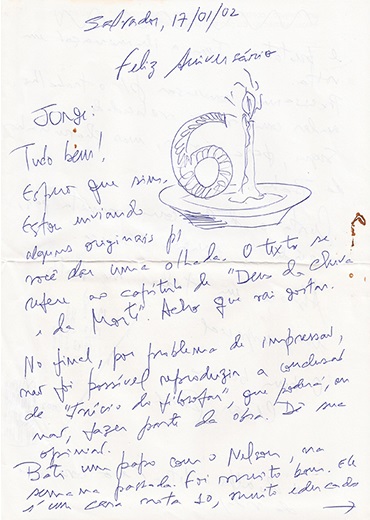 Salvador, 17/01/02
Feliz Aniversário
Jorge:
6
Tudo bem!
Espero que sim.
Estou enviando
alguns originais p/
você dar uma olhada. O texto se
refere ao capítulo de "Deus da Chuva
e da Morte". Acho que vai gostar.
No final, por problema de impressar,
não foi possível reproduzir a
de "Início do filosofar", que poderá, ou
não, fazer parte da obra. Dê sua
opinião.
Bati um papo com o Nelson, na
semana passada. Foi muito bom. Ele
é um cara nota 10, muito educado
→